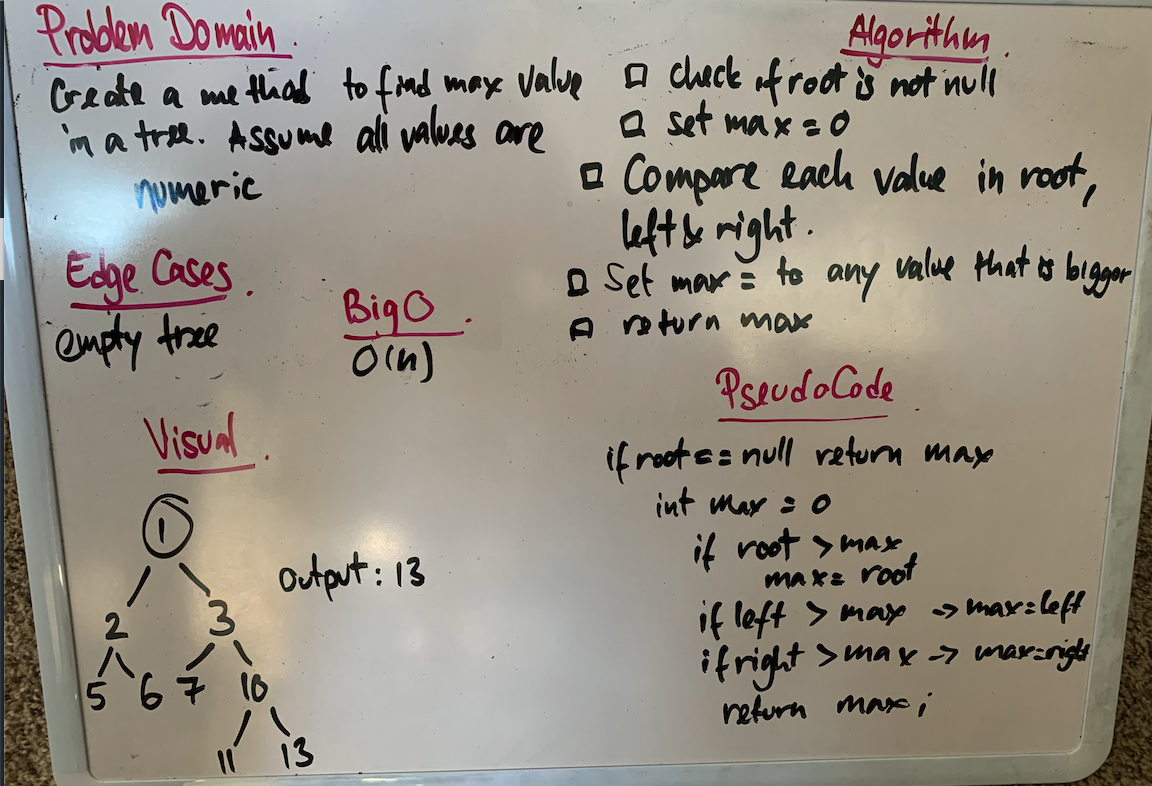 Problem Domain.
Create a method to find max value
in a tree. Assume all values are
numeric
Edge Cases.
empty tree
Big O.
O(n)
Visual.
1
2 3
5 6 7 10
11 13
Output: 13
Algorithm.
check if root is not null
set max = 0
Compare each value in root,
left & right.
Set max = to any value that is bigger
return max
PseudoCode.
if root == null return max
int max = 0
if root > max
max = root
if left > max -> max=left
if right > max -> max=right
return max;